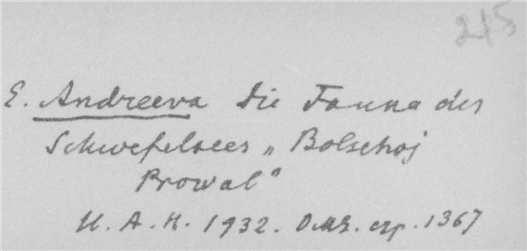 215
E. Andreeva Die Fauna des
Schwefelsees „Bolschoj
Prowal"
И. А. Н. 1932. О.М.Е. стр. 1367